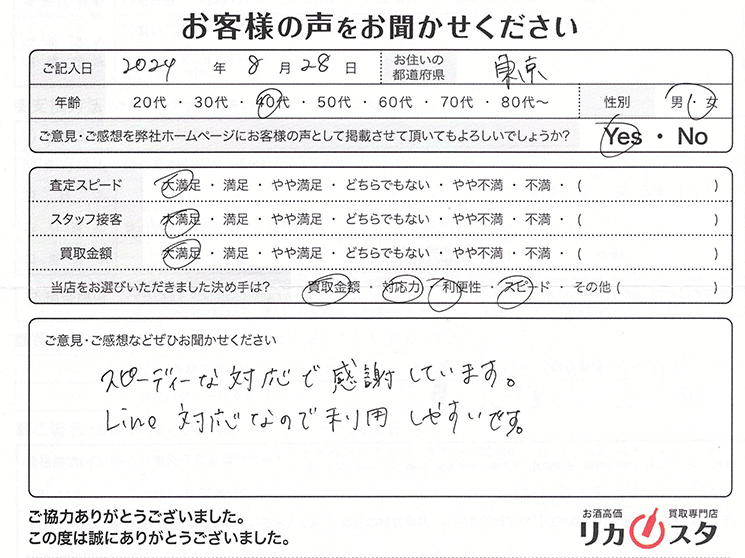 お客様の声をお聞かせください
ご記入日 2024 年 8 月 28 日 お住いの都道府県 東京
年齢 20代 ・ 30代 ・ 40代 ・ 50代 ・ 60代 ・ 70代 ・ 80代〜 性別 男 ・ 女
ご意見・ご感想を弊社ホームページにお客様の声として掲載させて頂いてもよろしいでしょうか? Yes ・ No
査定スピード 大満足 ・ 満足 ・ やや満足 ・ どちらでもない ・ やや不満 ・ 不満 ・ ( )
スタッフ接客 大満足 ・ 満足 ・ やや満足 ・ どちらでもない ・ やや不満 ・ 不満 ・ ( )
買取金額 大満足 ・ 満足 ・ やや満足 ・ どちらでもない ・ やや不満 ・ 不満 ・ ( )
当店をお選びいただきました決め手は? 買取金額 ・ 対応力 ・ 利便性 ・ スピード ・ その他 ( )
ご意見・ご感想などぜひお聞かせください
スピーディーな対応で感謝しています。
Line 対応なので利用しやすいです。
ご協力ありがとうございました。
この度は誠にありがとうございました。
お酒高価 買取専門店
リカスタ